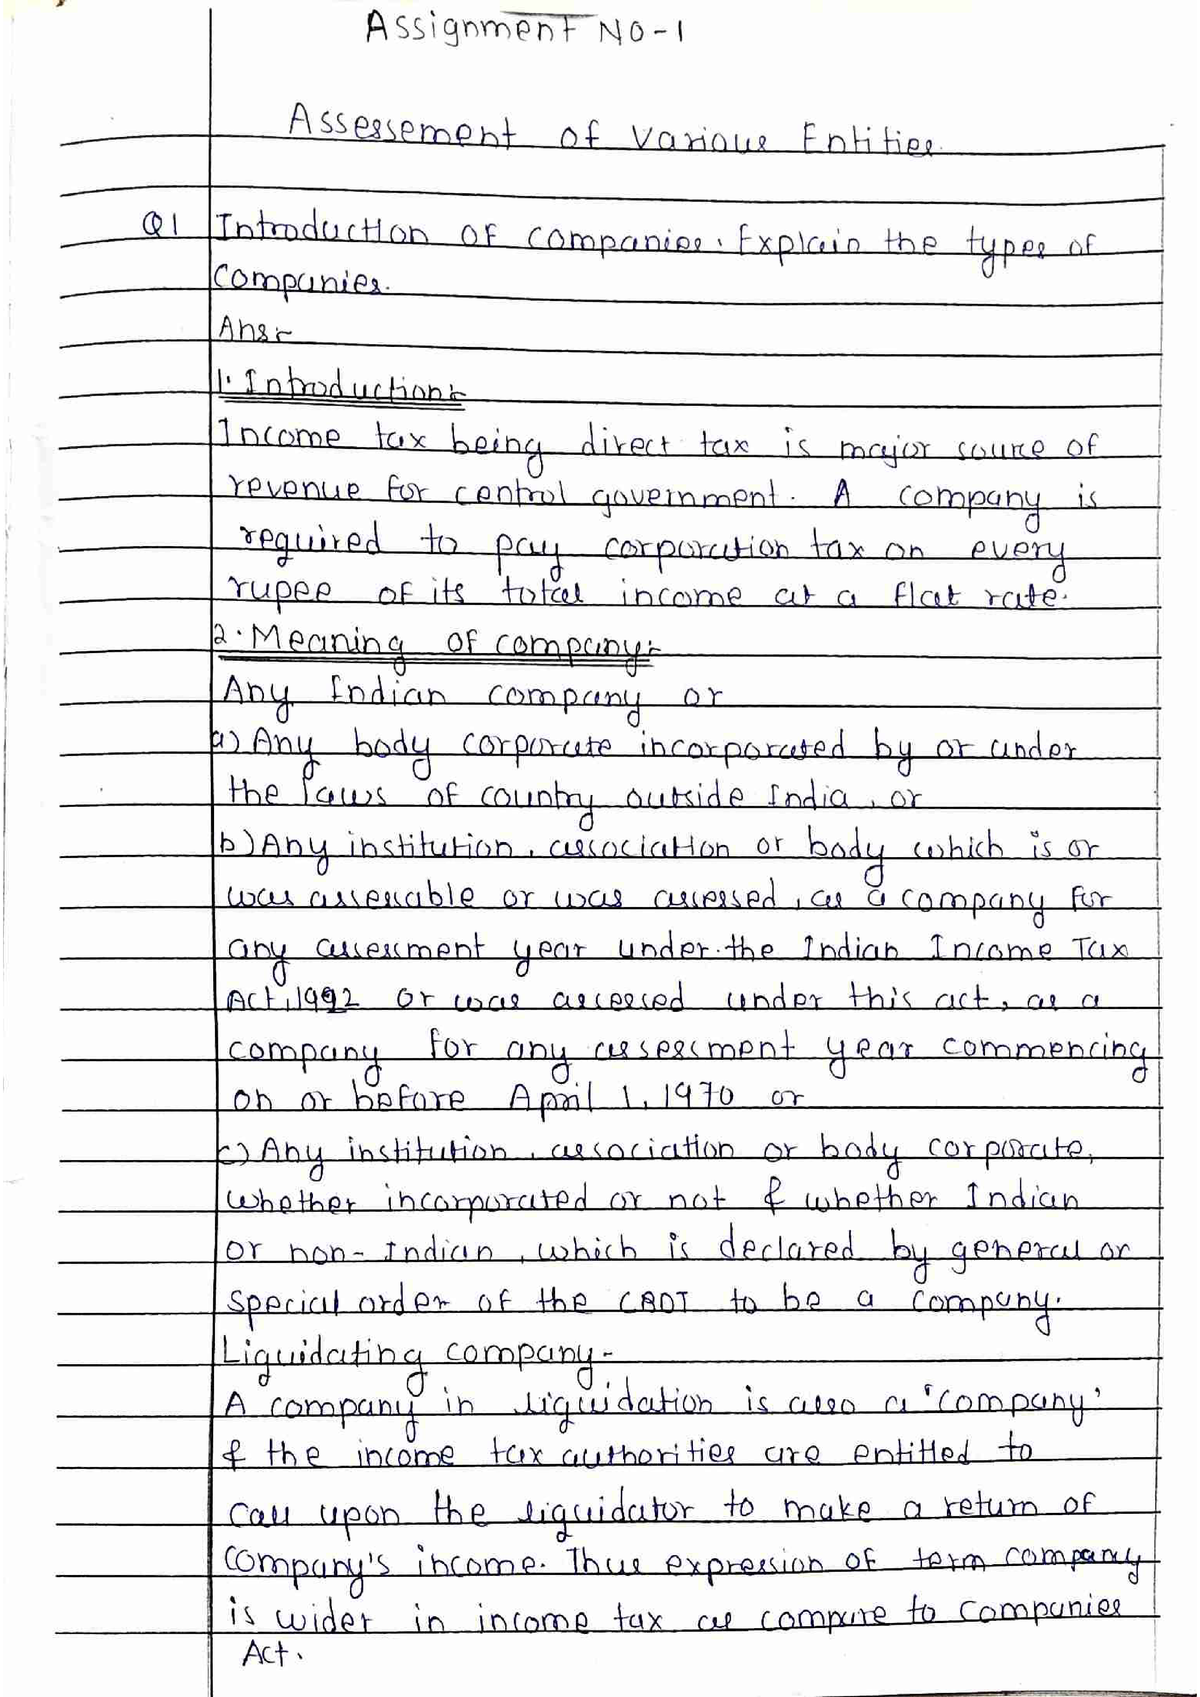 Assignment No-1
Assessement of Various Entities.
Q1 Introduction of companies. Explain the types of
Companies.
Ans:-
1. Introduction:-
Income tax being direct tax is major source of
revenue for central government. A company is
required to pay corporation tax on every
rupee of its total income at a flat rate.
2. Meaning of company:-
Any Indian company or
a) Any body corporate incorporated by or under
the laws of country outside India, or
b) Any institution, association or body which is or
was assessable or was assessed, as a company for
any assessment year under the Indian Income Tax
Act, 1992 or was assessed under this act, as a
company for any assessment year commencing
on or before April 1, 1970 or
c) Any institution, association or body corporate,
whether incorporated or not & whether Indian
or non-Indian, which is declared by general or
special order of the CBDT to be a company.
Liquidating company-
A company in liquidation is also a 'company'
& the income tax authorities are entitled to
call upon the liquidator to make a return of
company's income. Thus expression of term company
is wider in income tax as compare to companies
Act.